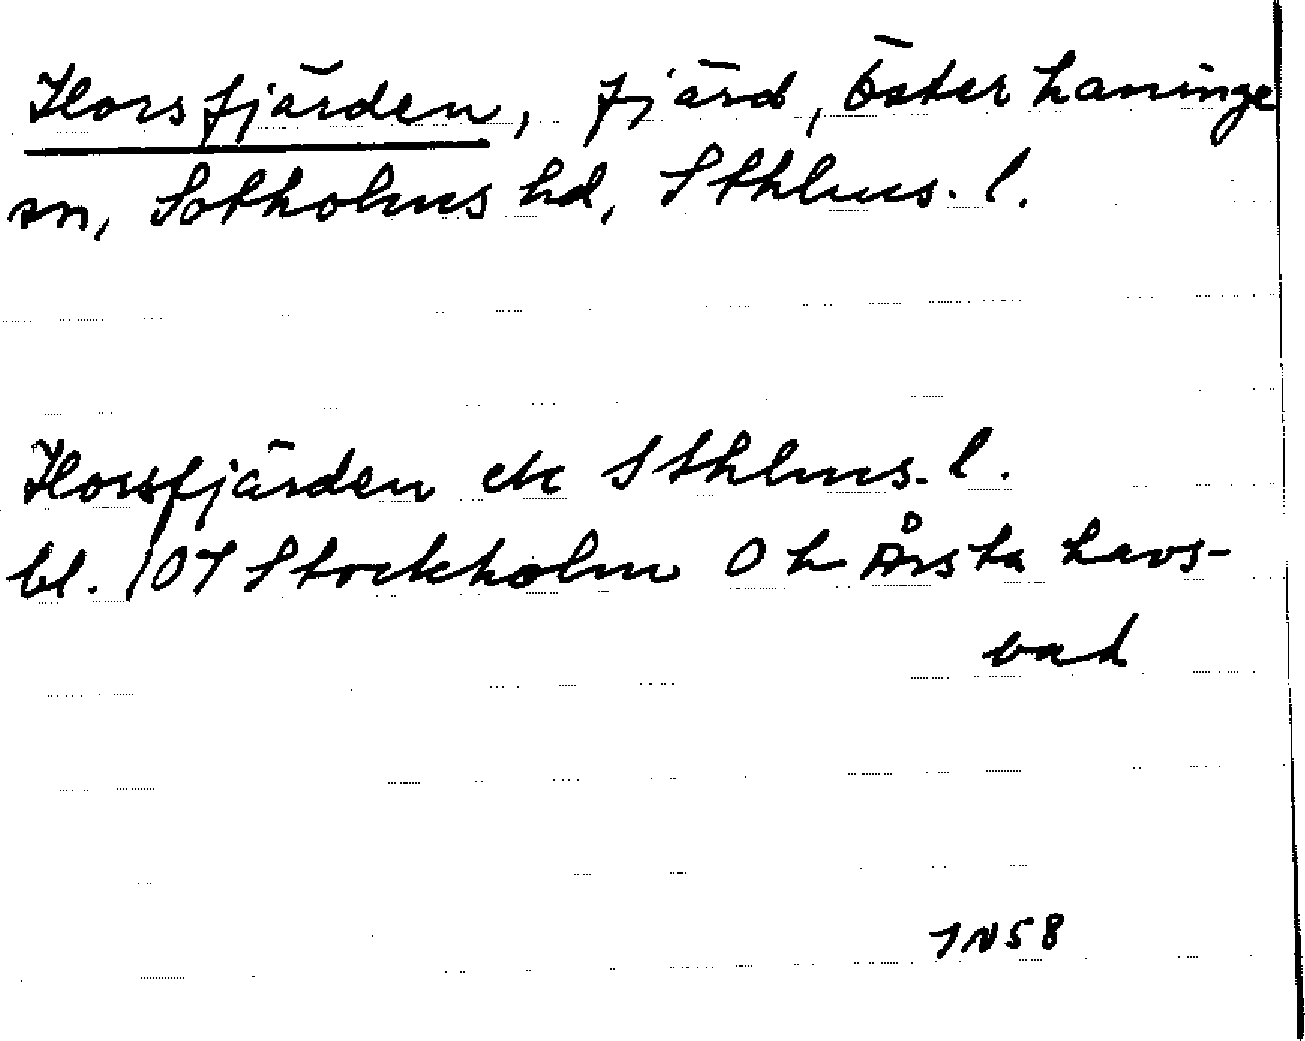 Horsfjärden, fjärd, Österhaninge
sn, Sotholms hd, Sthlms. l.
Horsfjärden ek Sthlms. l.
bl. 107 Stockholm O h Årsta havs-
bad
IN58